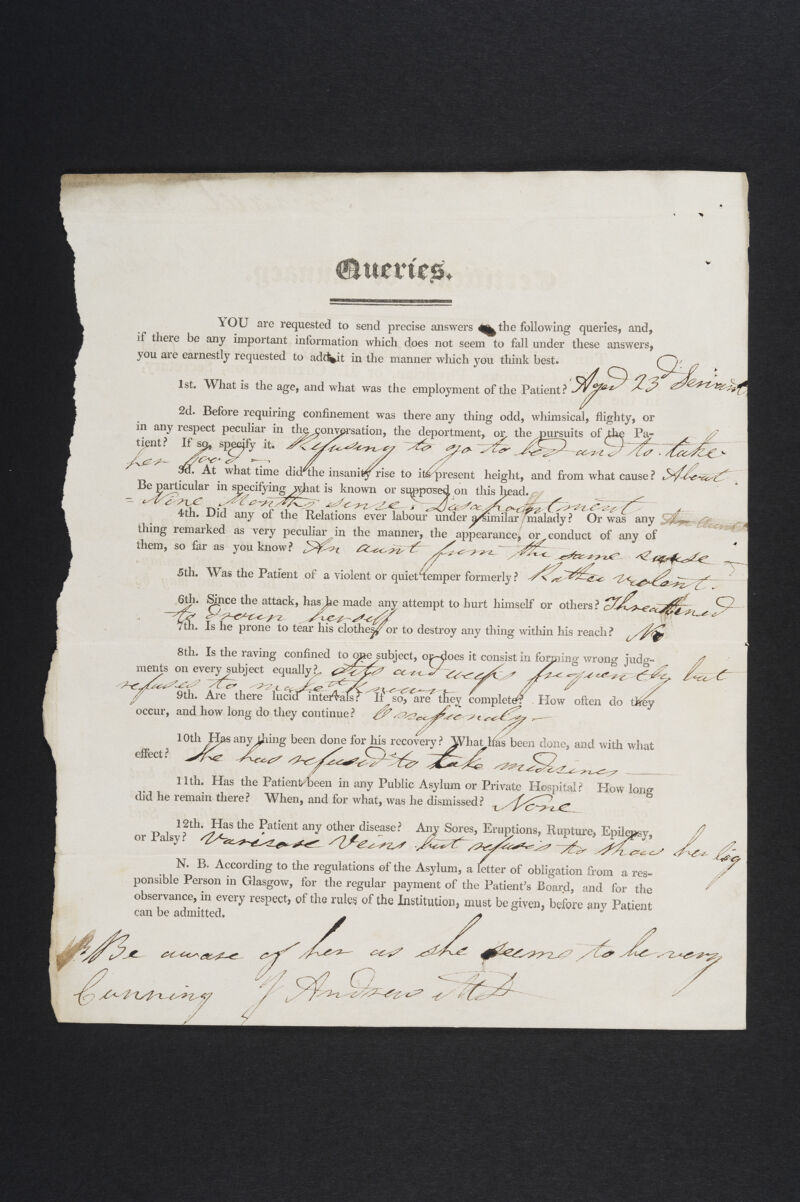 Queries.
YOU are requested to send precise answers the following queries, and,
if there be any important information which does not seem to fall under these answers,
you are earnestly requested to add it in the manner which you think best.
1st. What is the age, and what was the employment of the Patient? Aged 23 Servant
2d. Before requiring confinement was there any thing odd, whimsical, flighty, or
in any respect peculiar in the conversation, the deportment, or the pursuits of the Pa-
tient? If so, specify it. Refusing to go to bed and to take
her food –
3d. At what time did the insanity rise to its present height, and from what cause? About
Be particular in specifying what is known or supposed on this head.
= Nine Months sinse. Disapointment
4th. Did any of the Relations ever labour under a similar malady? Or was any An aunt
thing remarked as very peculiar in the manner, the appearance, or conduct of any of
them, so far as you know? An aunt from the same
5th. Was the Patient of a violent or quiet temper formerly? Rather violent.
6th. Since the attack, has he made any attempt to hurt himself or others? Threattened
to drown herself
7th. Is he prone to tear his clothes, or to destroy any thing within his reach? No
8th. Is the raving confined to one subject, or does it consist in forming wrong judg-
ments on every subject equally? Sits and weeps frequently but
refuses to make it known
9th. Are there lucid intervals? If so, are they complete? How often do they
occur, and how long do they continue? Occasionaly –
10th Has any thing been done for his recovery? What has been done, and with what
effect? She has refused to take medisines –
11th. Has the Patient been in any Public Asylum or Private Hospital? How long
did he remain there? When, and for what, was he dismissed? None
12th. Has the Patient any other disease? Any Sores, Eruptions, Rupture, Epilepsy,
or Palsy? Varisose Veins but refuses to show her leg
N. B. According to the regulations of the Asylum, a letter of obligation from a res-
ponsible Person in Glasgow, for the regular payment of the Patient's Board, and for the
observance, in every respect, of the rules of the Institution, must be given, before any Patient
can be admitted.
Be aware of her as she seems to be very
Cunning J Andrew MD